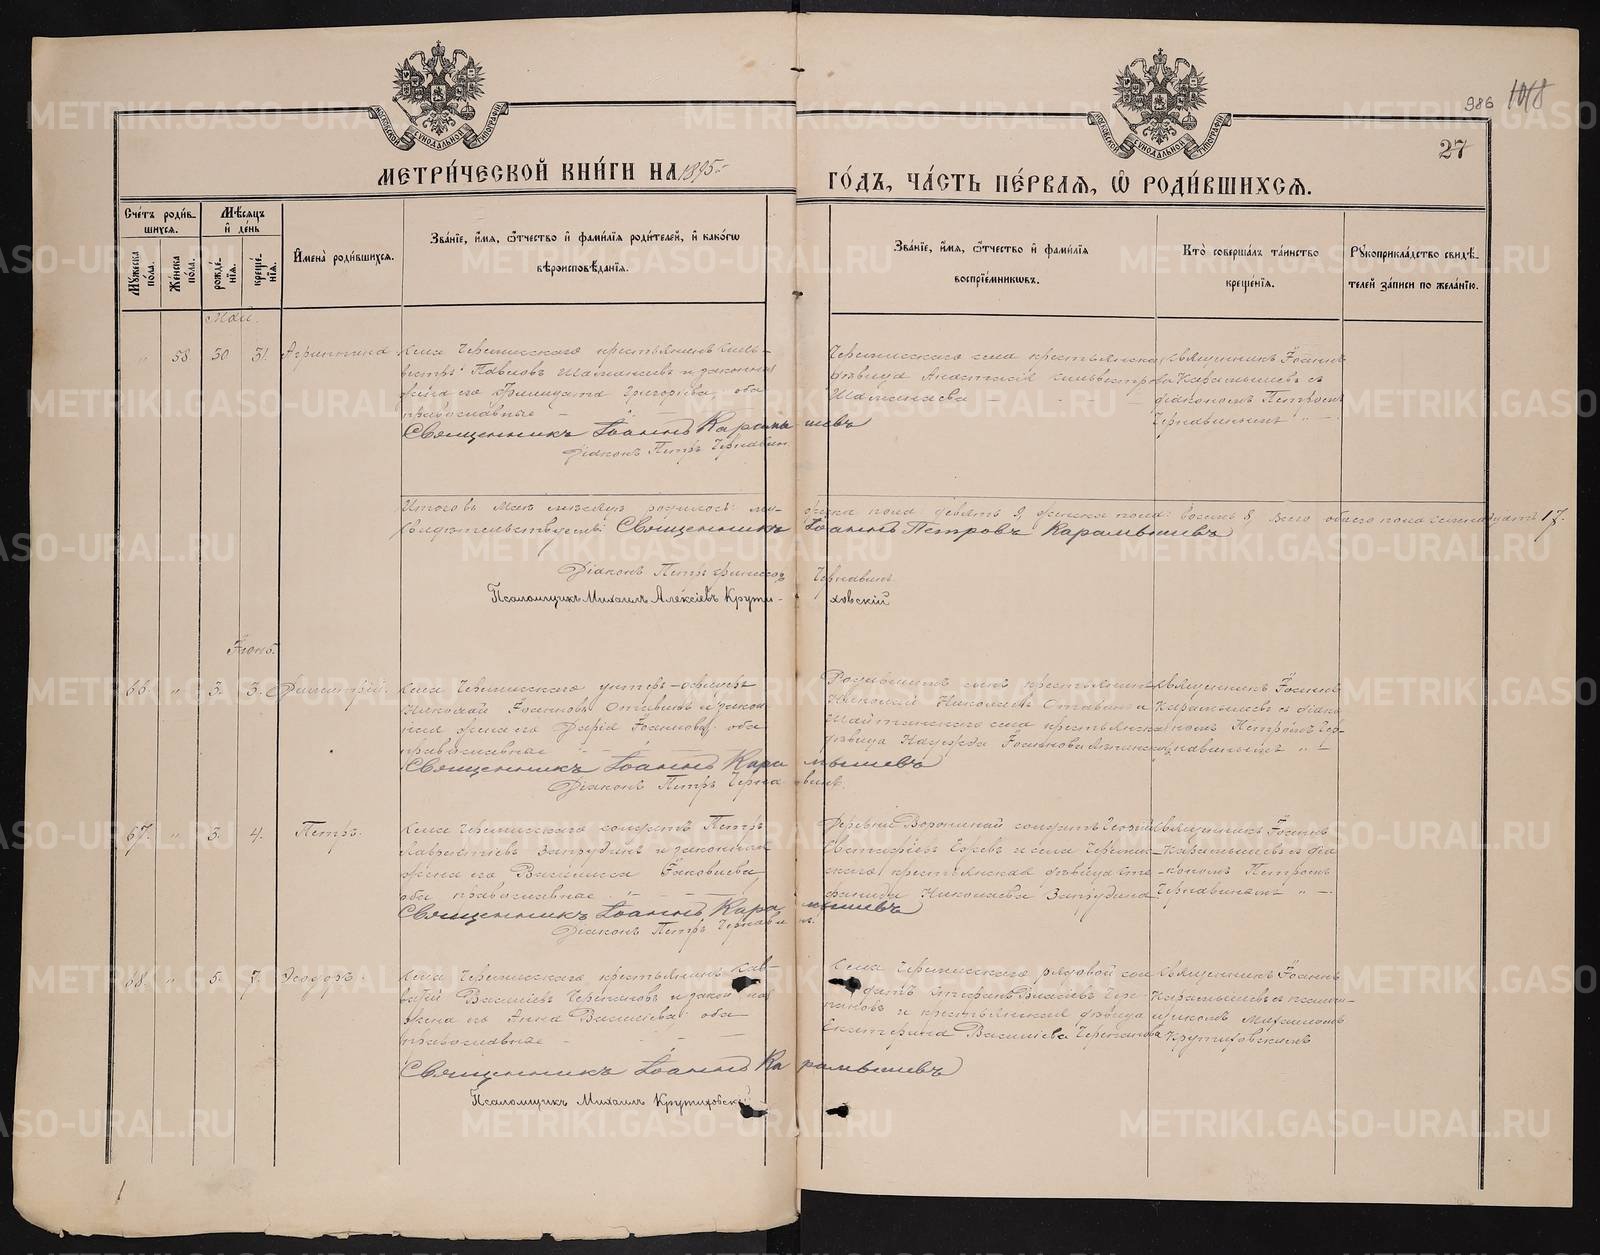 986 1018
27
МОСКОВСКОЙ СѴНОДАЛЬНОЙ ТИПОГРАФІИ
МОСКОВСКОЙ СѴНОДАЛЬНОЙ ТИПОГРАФІИ
МЕТРИ́ЧЕСКОЙ КНИ́ГИ НА 1895 ГО́ДЪ, ЧА́СТЬ ПЕ́РВАЯ, Ѡ РОДИ́ВШИХСЯ.
Сче́тъ роди́в-
шихся.
Му́жеска по́ла.
Же́нска по́ла.
Мѣ́сяцъ
и де́нь
рожде́нія.
креще́нія.
И́мена роди́вшихся.
Зва́ніе, и́мя, ѻ́тчество и фами́лія роди́телей, и како́гѡ
вѣроисповѣ́данія.
Зва́ніе, и́мя, ѻ́тчество и фами́лія
воспріе́мникѡвъ.
Кто̀ соверша́лъ та́инство
креще́нія.
Рꙋкоприкла́дство свидѣ́-
телей за́писи по жела́нію.
Май.
" 58. 30 31. Агриппина
Села Черемисскаго крестьянинъ Силь-
вестръ Павловъ Шаманаевъ и законная
жена его Григорьева, оба
православные
Священникъ Іоаннъ Карамышевъ
Діаконъ Петръ Чернавинъ
Черемисскаго села крестьянская
дѣвица Анастасія Сильвестрова
Шаманаева
Священникъ Іоаннъ
Карамышевъ съ
діакономъ Петромъ
Чернавинымъ
Итого въ Маѣ мѣсяцѣ родилось: му-
жска пола девять 9, женска пола: восемь 8, всего обоего пола семнадцать 17.
Свидѣтельствуемъ: Священникъ Іоаннъ Петровъ Карамышевъ
Діаконъ Петръ Чернавинъ
Псаломщикъ Михаилъ Алексіевъ Крутиховскій
Іюнь.
66. " 3. 3. Димитрій.
Села Черемисскаго унтеръ-офицеръ
Николай Іоанновъ и закон-
ная жена его Дарія Іоаннова, оба
православные
Священникъ Іоаннъ Карамышевъ
Діаконъ Петръ Чернавинъ.
Родившихъ сынъ крестьянинъ
Николай Николаевъ и
Шайтанскаго села крестьянская
дѣвица Надежда Іоаннова
Священникъ Іоаннъ
Карамышевъ съ діако-
номъ Петромъ Чер-
навинымъ
67. " 3. 4. Петръ.
Села Черемисскаго солдатъ Петръ
Лаврентіевъ Запрудинъ и законная
жена его Василисса Іаковлева,
оба православные
Священникъ Іоаннъ Карамышевъ
Діаконъ Петръ Чернавинъ.
Деревни Ворониной солдатъ Георгій
Евстафіевъ и села Черемис-
скаго крестьянская дѣвица Сте-
фанида Николаева Запрудина
Священникъ Іоаннъ
Карамышевъ съ діа-
кономъ Петромъ
Чернавинымъ
68. " 5. 7. Ѳеодоръ.
Села Черемисскаго крестьянинъ Сав-
ватій Василіевъ Черепановъ и законная
жена его Анна Василіева, оба
православные
Священникъ Іоаннъ Карамышевъ
Псаломщикъ Михаилъ Крутиховскій
Села Черемисскаго рядовой сол-
датъ Стефанъ Власіевъ Чере-
пановъ и крестьянская дѣвица
Екатерина Василіева Черепанова
Священникъ Іоаннъ
Карамышевъ съ псалом-
щикомъ Михаиломъ
Крутиховскимъ